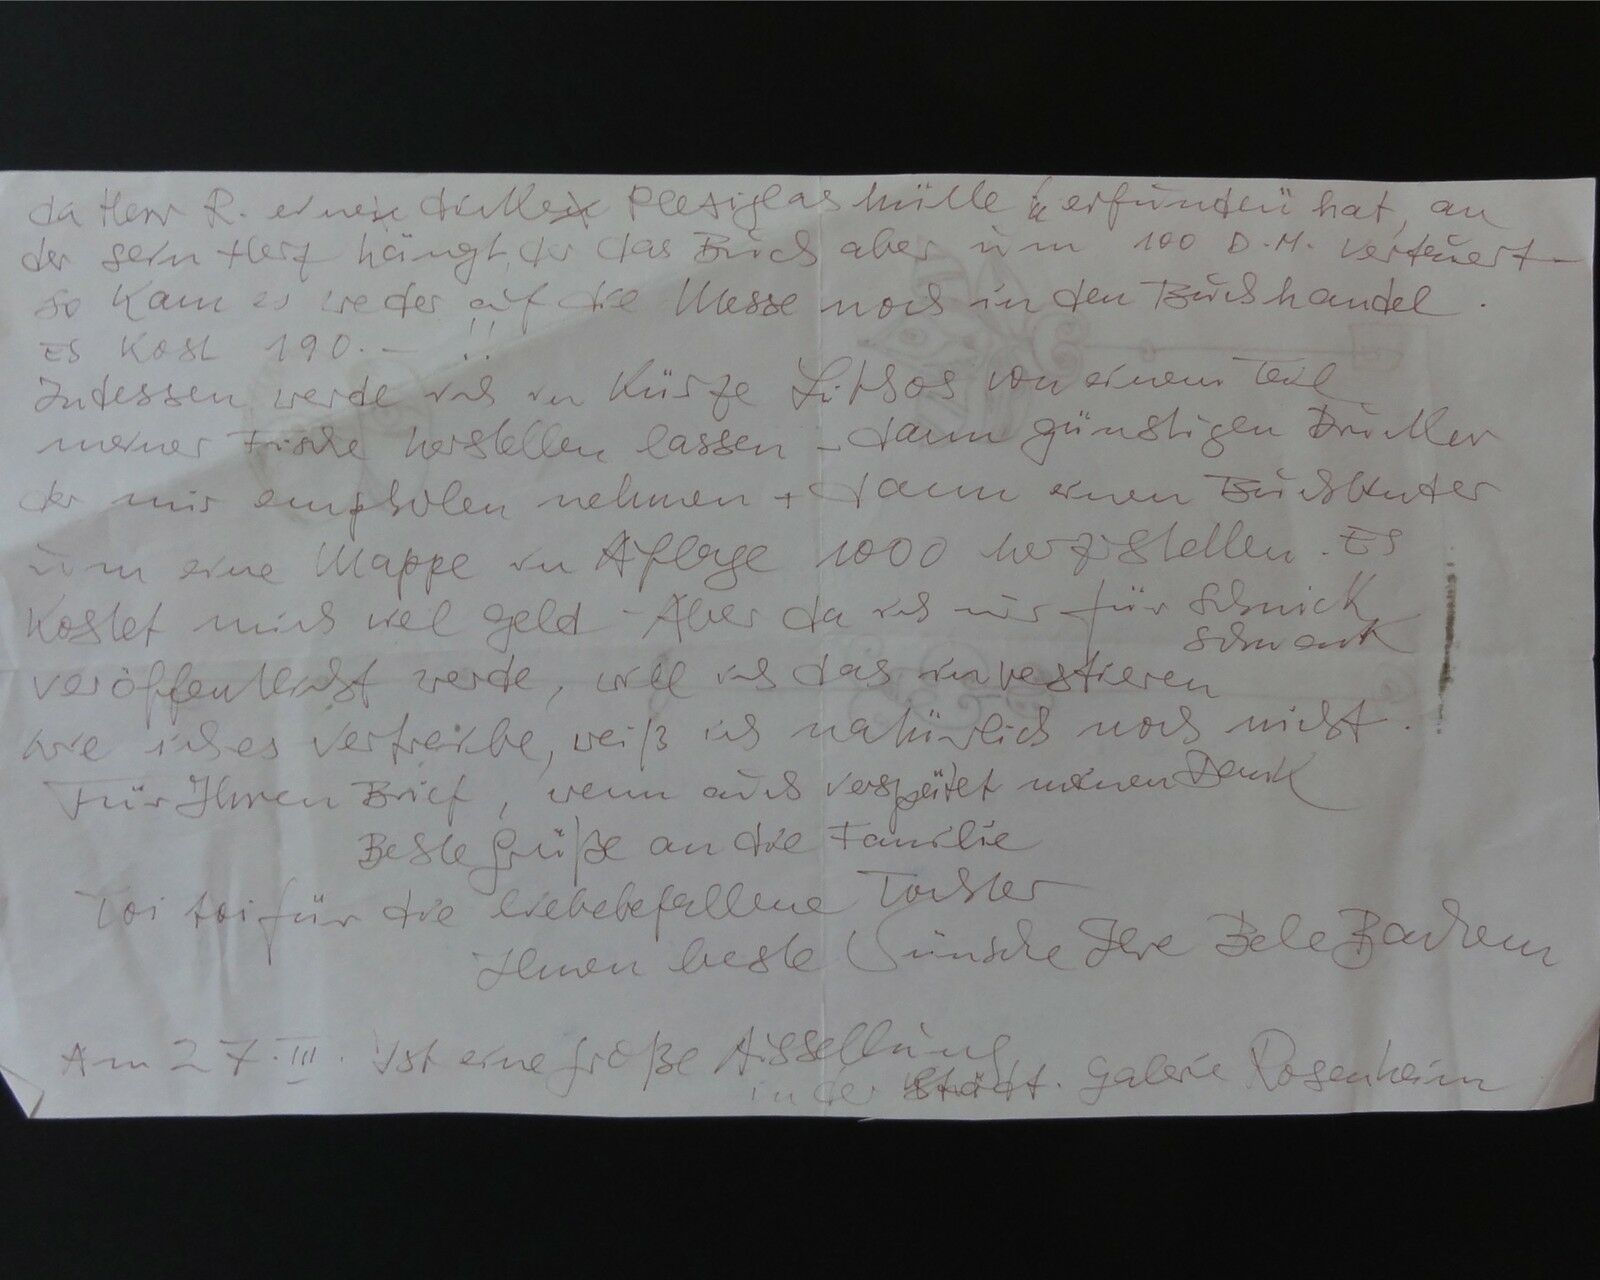 da Herr R. eine dicke Plexiglashülle "erfunden" hat, an
der sein Herz hängt, der das Buch aber um 100 D.M. verteuert –
so kam es weder auf die Messe noch in den Buchhandel.
Es kost 190.– !!
Indessen werde ich in Kürze Lithos von einem Teil
meiner Fische herstellen lassen – dann günstigen Drucker
der mir empholen nehmen + dann einen Buchbinder
um eine Mappe in Auflage 1000 herzustellen. Es
kostet mich viel Geld – Aber da ich nur für Schnick
Schnack
veröffentlicht werde, will ich das investieren
wie ich es vertreibe, weiß ich natürlich noch nicht.
Für Ihren Brief, wenn auch verspätet meinen Dank
Beste Grüße an die Familie
Toi toi für die liebebefallene Tochter
Ihnen beste Wünsche Ihre Bele Bachem
Am 27.III. ist eine große Ausstellung
in der Städt. Galerie Rosenheim